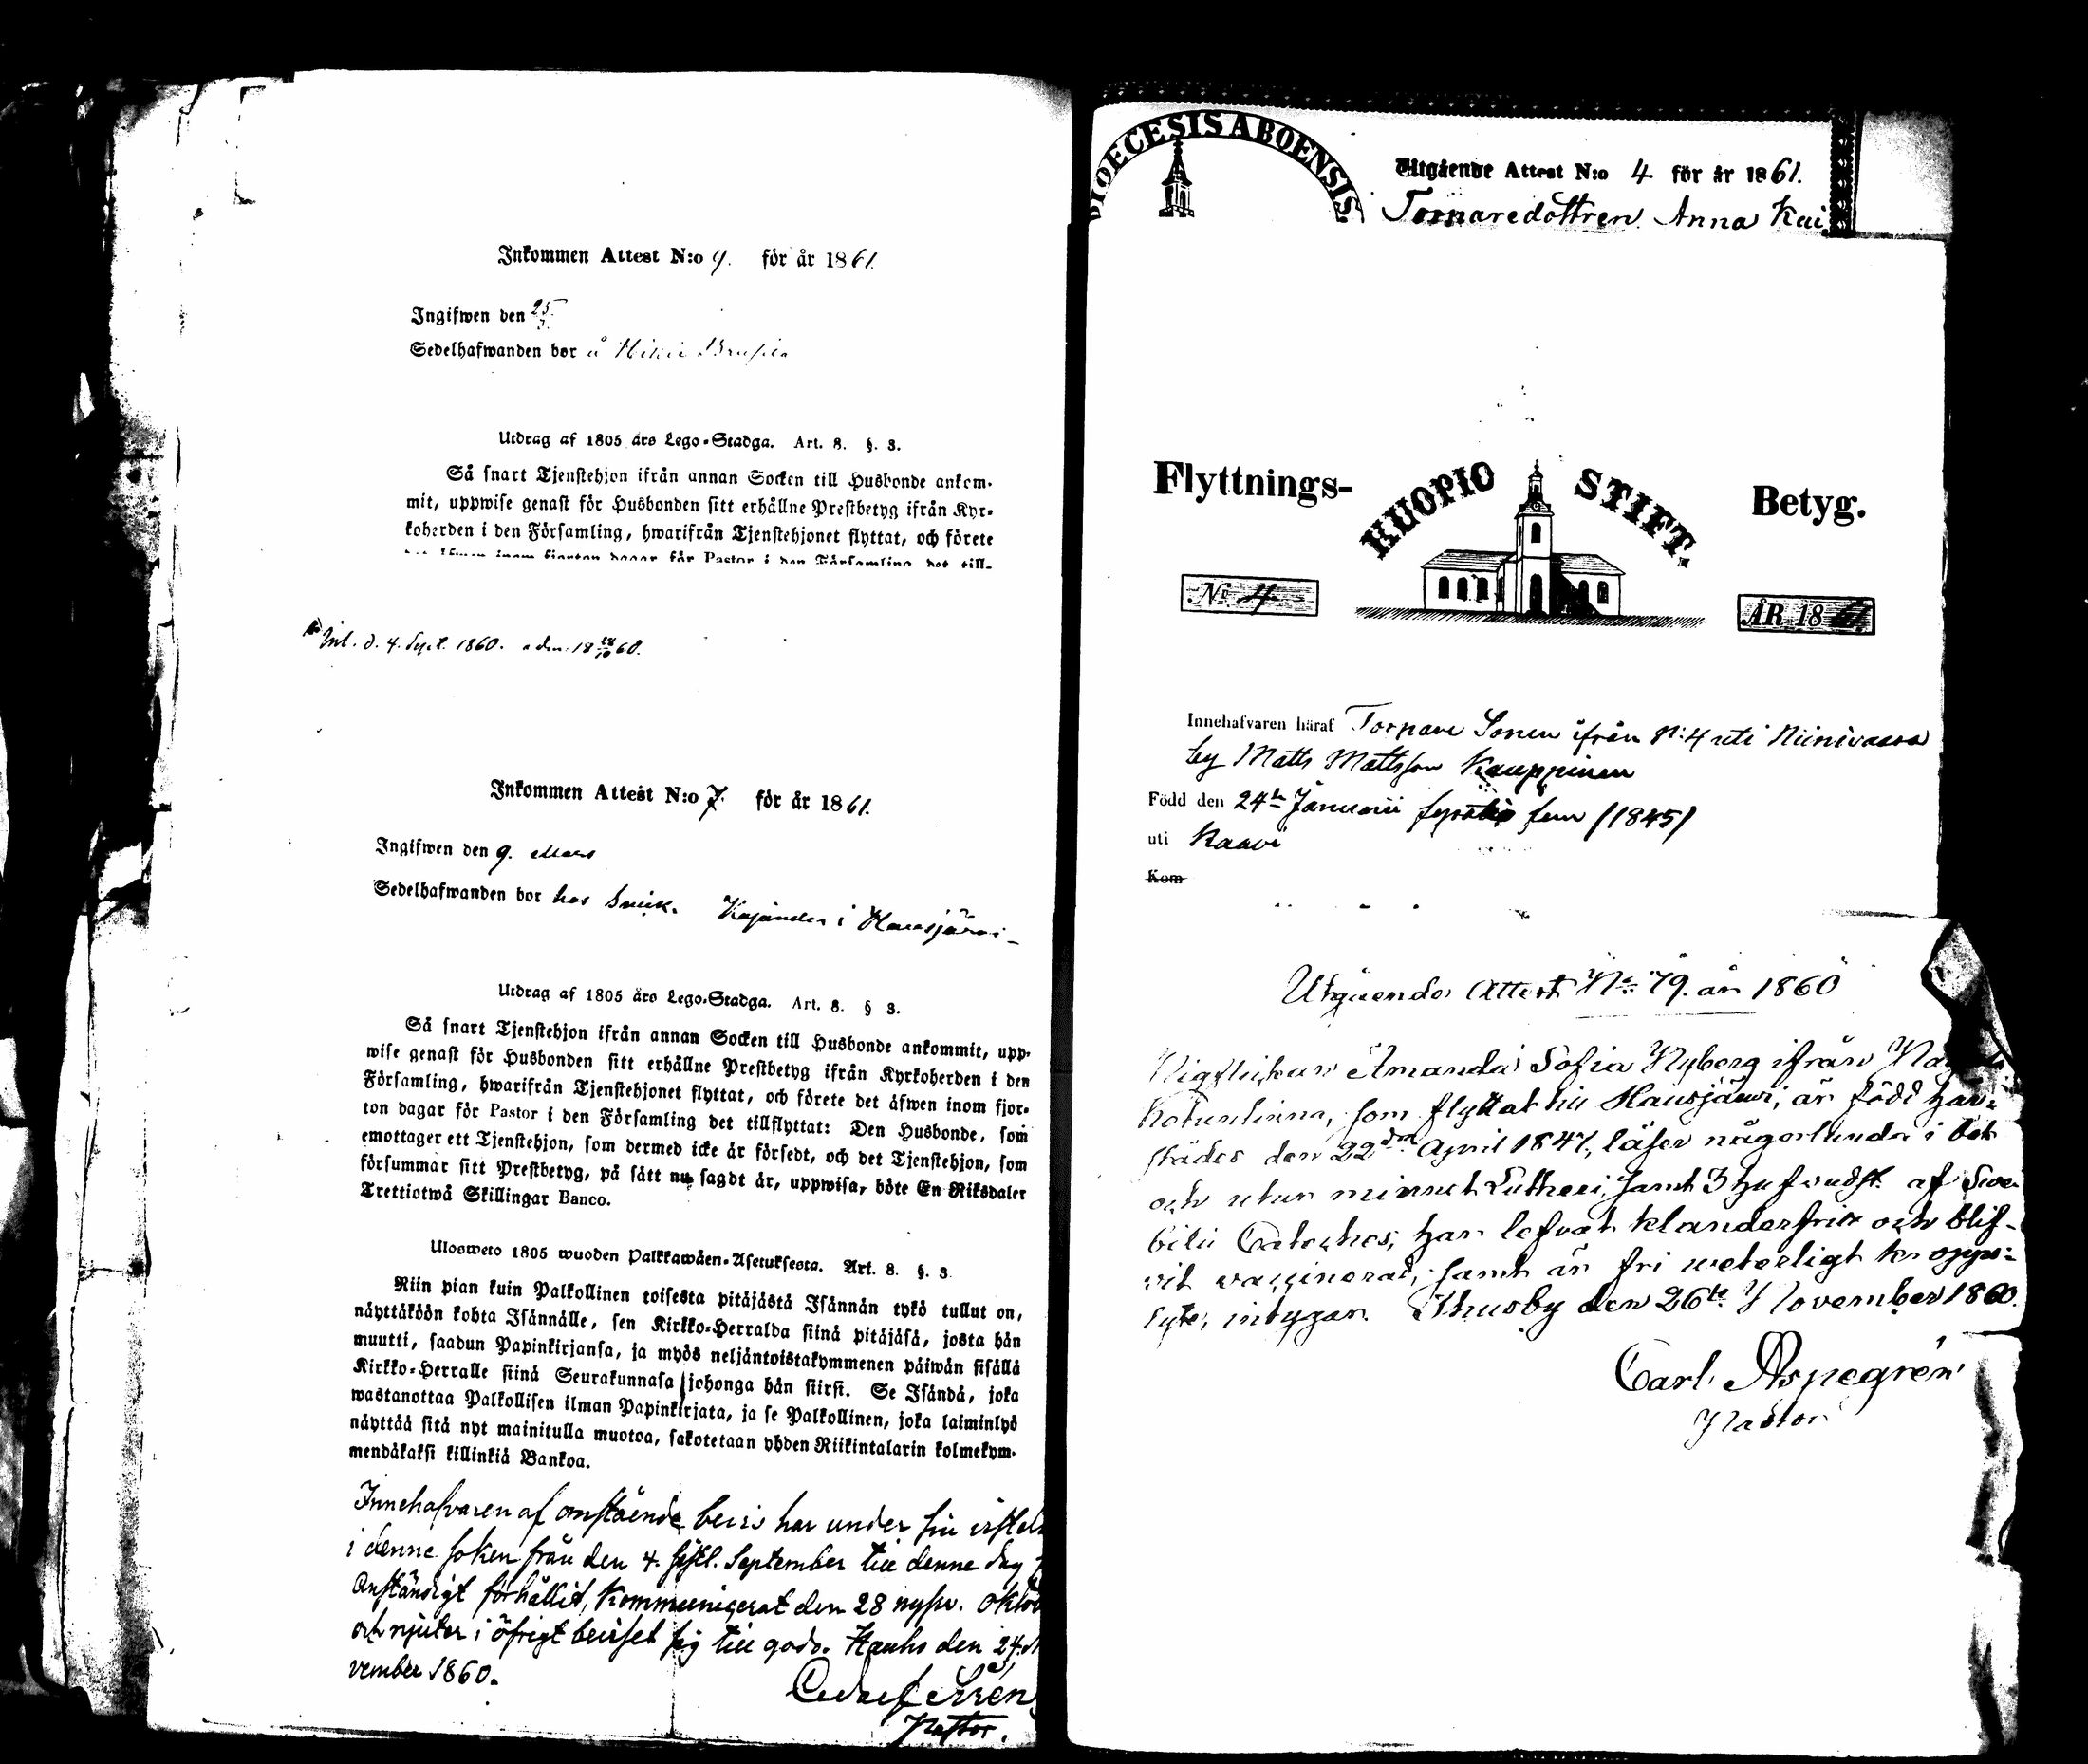 Inkommen Attest N:o 9. för år 1861.
Ingifwen den 25
Sedelhafwanden bor å
Utdrag af 1805 års Lego-Stadga. Art. 8. §. 3.
Så snart Tjenstehjon ifrån annan Socken till Husbonde ankom-
mit, uppwise genast för Husbonden sitt erhållne Prestbetyg ifrån Kyr-
koherden i den Församling, hwarifrån Tjenstehjonet flyttat, och förete
det äfwen inom fjorton dagar för Pastor i den Församling det till-
Inl. d. 4. Sept. 1860.
Inkommen Attest N:o 7. för år 1861.
Ingifwen den 9. Mars
Sedelhafwanden bor hos Kajander i Hausjärvi
Utdrag af 1805 års Lego-Stadga. Art. 8. § 3.
Så snart Tjenstehjon ifrån annan Socken till Husbonde ankommit, upp-
wise genast för Husbonden sitt erhållne Prestbetyg ifrån Kyrkoherden i den
Församling, hwarifrån Tjenstehjonet flyttat, och förete det äfwen inom fjor-
ton dagar för Pastor i den Församling det tillflyttat: Den Husbonde, som
emottager ett Tjenstehjon, som dermed icke är försedt, och det Tjenstehjon, som
försummar sitt Prestbetyg, på sätt nu sagdt är, uppwisa, böte En Riksdaler
Trettiotwå Skillingar Banco.
Ulosweto 1805 wuoden Palkkawäen-Asetuksesta. Art. 8. §. 3
Niin pian kuin Palkollinen toisesta pitäjästä Isännän tykö tullut on,
näyttäköön kohta Isännälle, sen Kirkko-Herralda siinä pitäjäsä, josta hän
muutti, saadun Papinkirjansa, ja myös neljäntoistakymmenen päiwän sisällä
Kirkko-Herralle siinä Seurakunnasa johonga hän siirsi. Se Isändä, joka
wastanottaa Palkollisen ilman Papinkirjata, ja se Palkollinen, joka laiminlyö
näyttää sitä nyt mainitulla muotoa, sakotetaan yhden Riikintalarin kolmekym-
mendäkaksi killinkiä Bankoa.
Innehafvaren af omstående bevis har under sin vistels
i denne soken från den 4. sistl. September till denne dag
Anständigt förhållit, kommunicerat den 28 nyss. Oktob
och njuter i öfrigt beviset sig till godo. Hauho den 24. N
vember 1860.
Pastor.
DIOECESIS ABOENSIS.
Utgående Attest N:o 4 för år 1861.
Torparedottren Anna Kai
Flyttnings- KUOPIO STIFT. Betyg.
No 4 ÅR 1861
Innehafvaren häraf Torpare Sonen ifrån N:4 uti Niinivaara
by Matts Mattsson Kauppinen
Född den 24de Januarii fyratio fem (1845)
uti Kaavi
Kom
Utgående Attest No 79. år 1860
Pigflickan Amanda Sofia Nyberg ifrån
som flyttat till Hausjärvi, är född här-
städes den 22dra April 1847, läser någorlunda i bok
och utur minnet Lutheri, samt 3 hufvudst. af Sve-
bilii Cateches, har lefvat klanderfritt och blif-
vit vaccinerad, samt är fri veterligt kropps-
lyte, intygar. Thusby den 26te November 1860.
Carl Aspegrén
Pastor